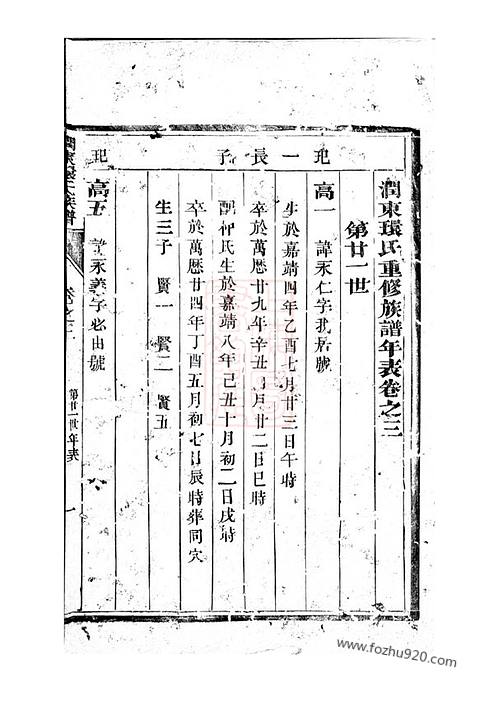 潤東環氏重修族譜年表卷之三
第廿一世
圯一長子
高一 諱永仁字我居號
生於嘉靖四年乙酉七月廿三日午時
卒於萬曆廿九年辛丑月廿二日巳時
配神氏生於嘉靖八年己丑十月初二日戌時
卒於萬曆廿四年丁酉五月初七日辰時葬同穴
生三子 賢一 賢二 賢五
圯
高五 諱永義字必由號
卷之三
第廿一世年表
一
www.fozhu920.com